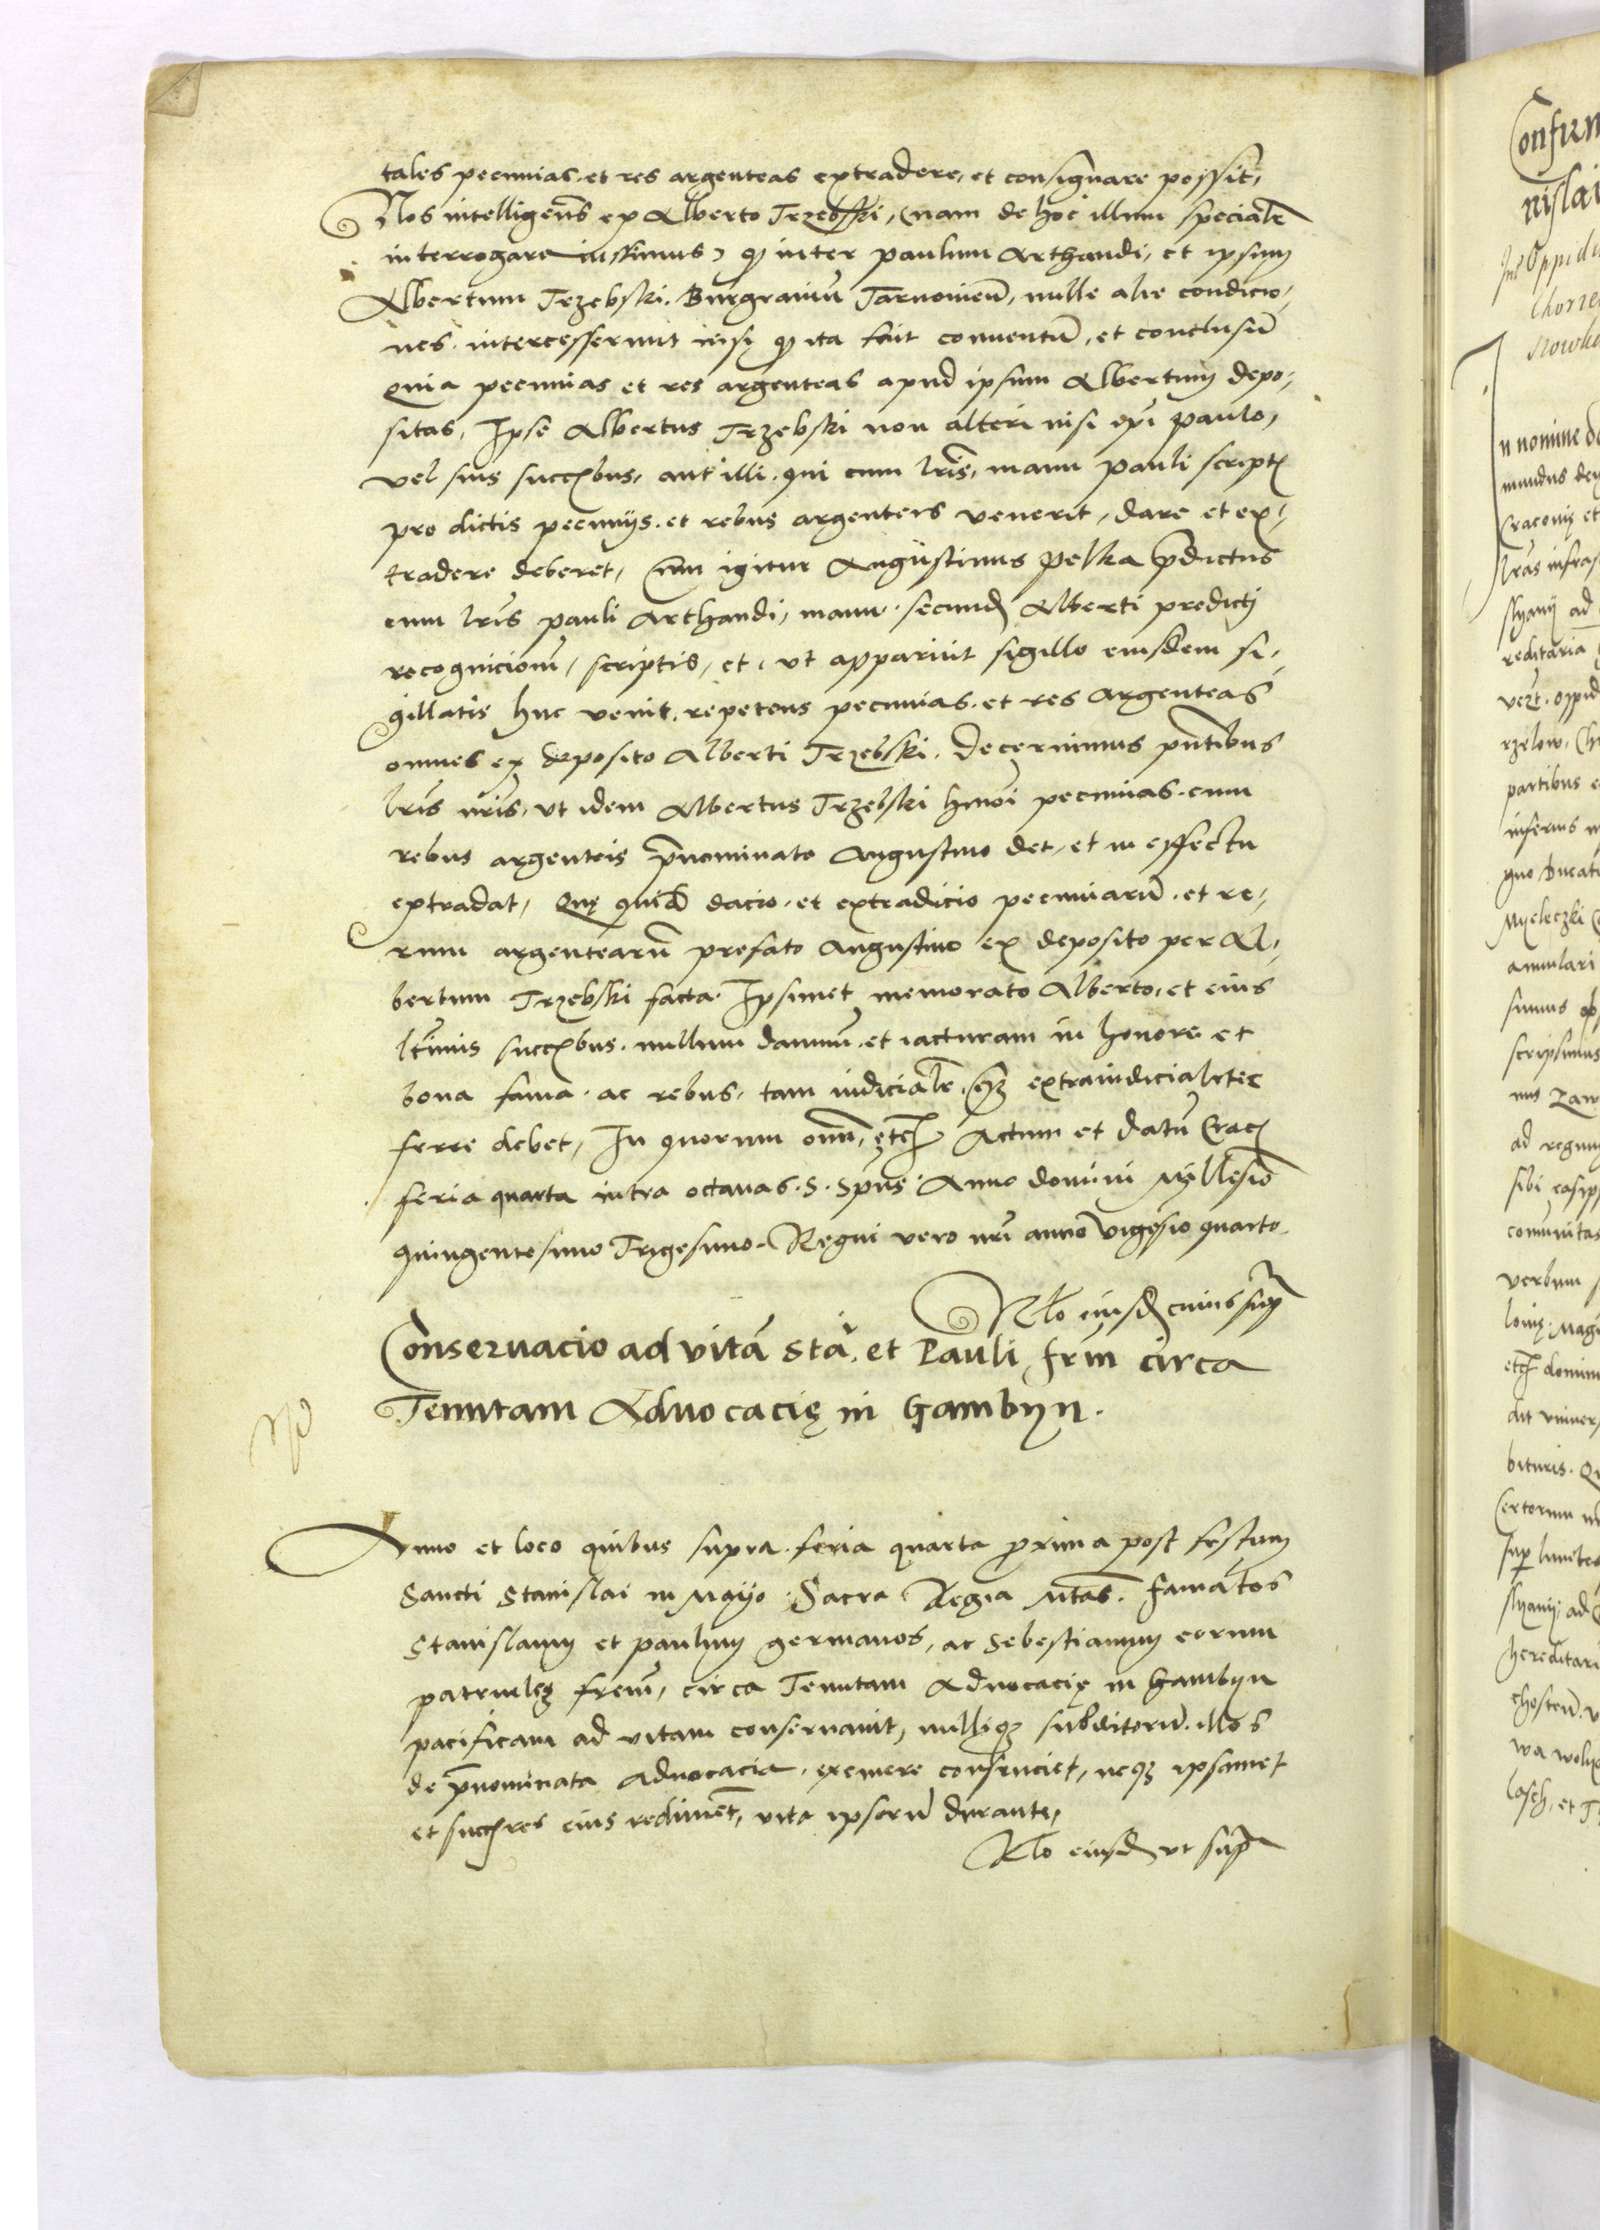 tales pecunias et res argenteas extradere, et consignare possit,
Nos intelligens ex Alberto Trzebski, Nam de hoc illum specialr
interrogare iussimus, q inter paulum Arthandi, et ipsum
Albertum Trzebski Burgraviu Tarnovien, nulle alie condicio,
nes intercesserunt nisi q ita fuit conventu, et conclusu
Quia pecunias et res argenteas apud ipsum Albertum depo,
sitas, Ipse Albertus Trzebski non alteri nisi epi paulo,
vel suis succbus, aut illi qui cum lris, manu pauli scriptis
pro dictis pecunijs et rebus argenteis venerit, dare et ex,
tradere deberet, Cum igitur Augustinus Pelka pdictus
cum lris pauli Arthandi, manu secund Alberti predicti
recognicionem, scriptis, et ut apparuit sigillo eiusdem si,
gillatis huc venit repetens pecunias et res argenteas
omnes ex deposito Alberti Trzebski. Decernimus pntibus
lris nris, ut idem Albertus Trzebski hmoi pecunias cum
rebus argenteis pnominato Augustino det, et in effectu
extradat, Que quid dacio et extradicio pecuniaru et re,
rum argentearu prefato Augustino ex deposito per Al,
bertum Trzebski facta Ipsimet memorato Alberto, et eius
ltimis succbus nullum damnu et iacturam in honore et
bona fama ac rebus, tam iudicialr qz extraiudicialiter
ferre debet, In quorum omn, etc Actum et datu Crac
feria quarta intra octavas S. Spus Anno domini Millesio
quingentesimo Trigesimo. Regni vero nri anno vigesio quarto
Rlo eiusd cuius sup
Conservacio ad vitā Sta. et Pauli frm circa
Tenutam Advocacię in Gambyn.
Anno et loco quibus supra feria quarta proxima post festum
Sancti Stanislai in Mayo Sacra Regia Mtas. famatos
Stanislaum et paulum germanos, ac Sebestianum eorum
patruelez frem, circa Tenutam Advocacię in Gambyn
pacificam ad vitam conservavit, nulliqz subditoru illos
de pnominata Advocacia exemere consenciet, neqz ipsamet
et succres eius rediment, vita ipsoru durante,
Rlo eiusd ut sup
Confirm
nislai
Oppidu
n nomine do
mundus dei
Cracovię et
lras infras
reditaria
partibus
inferius
Myeleczki
annulari
scripsimus
ad regnum
sibi
comunitas
verbum
domin
dit univer
bituris. Q
Certorum
hereditari